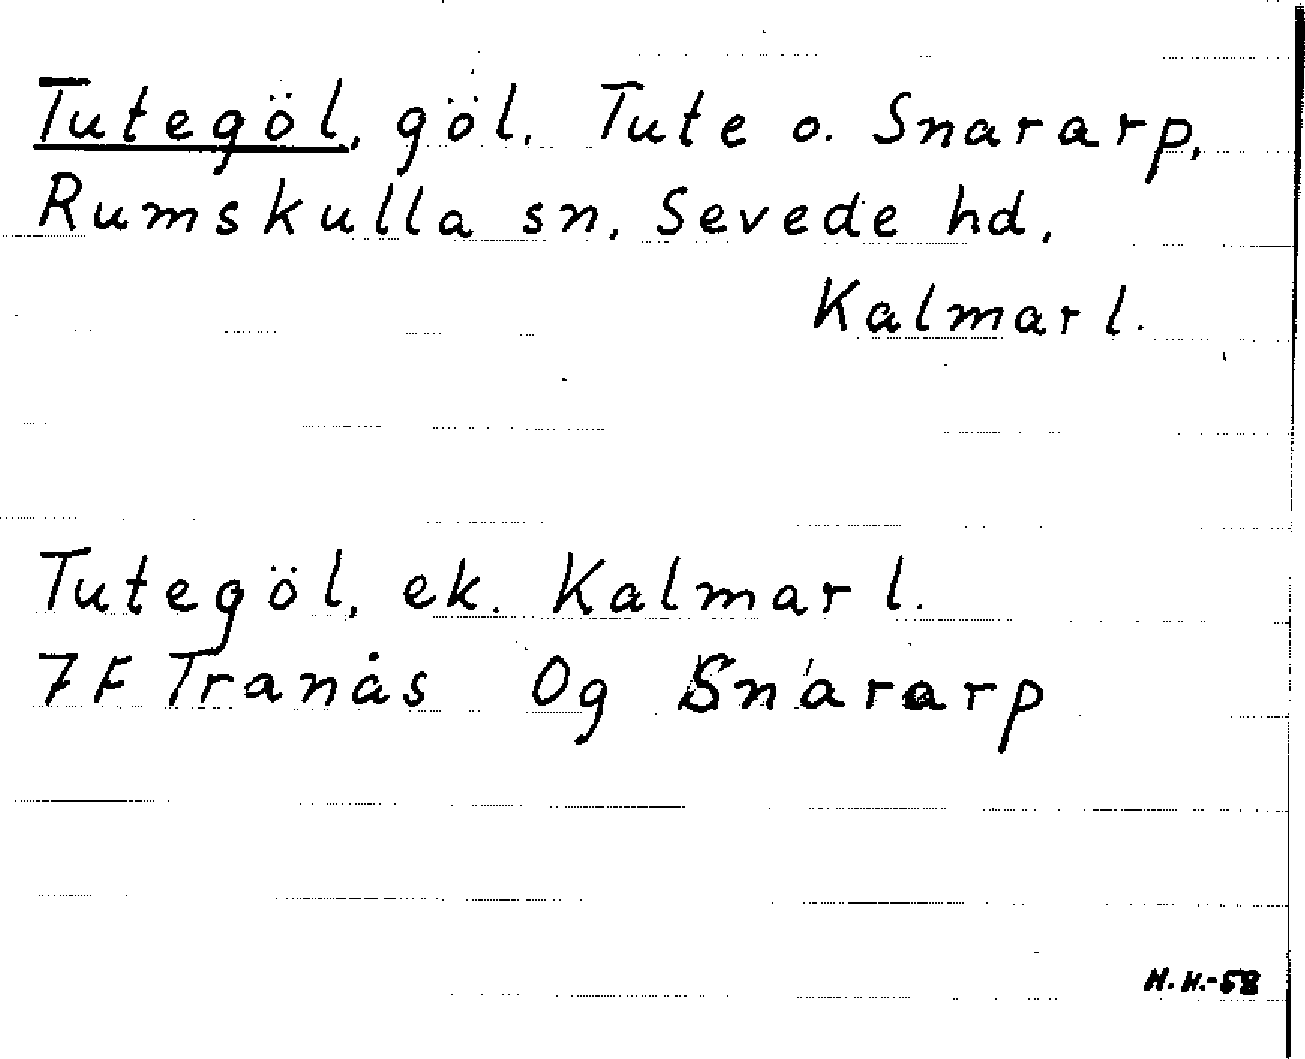 Tutegöl, göl. Tute o. Snararp,
Rumskulla sn. Sevede hd.
Kalmar l.
Tutegöl, ek. Kalmar l.
7F Tranås 0g Snararp
H.H.-58